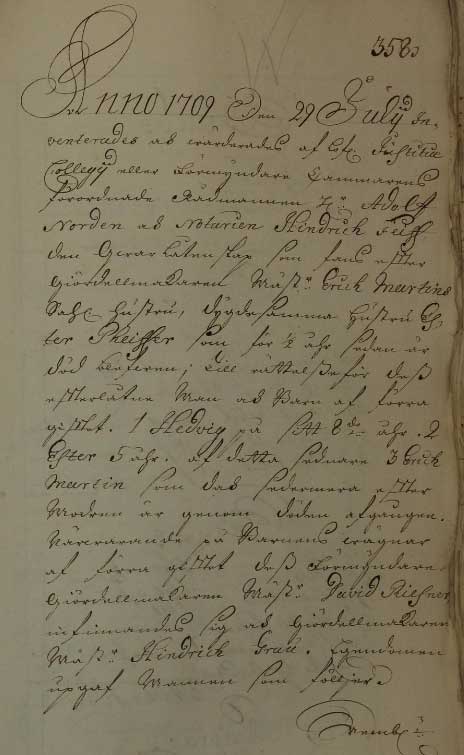 358.
Anno 1709 Den 29 Julij In-
venterades och wärderades af Justitiæ
Collegij eller Förmyndare Cammarens
förordnade Rådmannen Hr Adolff
Norden och Notarien Hindrich Feiff
den qvarlåtenskap som fans effter
Giördellmakaren Mäst: Erich Martins
Sahl. hustru, dygdesamma hustru Es-
ter Pheiffer som för 1/2 åhr sedan är
död blefven; till rättelße för deß
effterlåtne Man och Barn af förra
gifftet. 1 Hedvig på sitt 8de åhr. 2
Ester 5 åhr. af detta sednare 3 Erich
Martin som dock sedermera effter
Modren är genom döden afgången.
Närwarande på Barnens wägnar
af förra gifftet deß Förmyndare
Giördellmakaren Mäst: David Rießner
infinnandes sig och Giördellmakaren
Mäst: Hindrich Grau. Egendomen
upgaf Mannen som föllier.